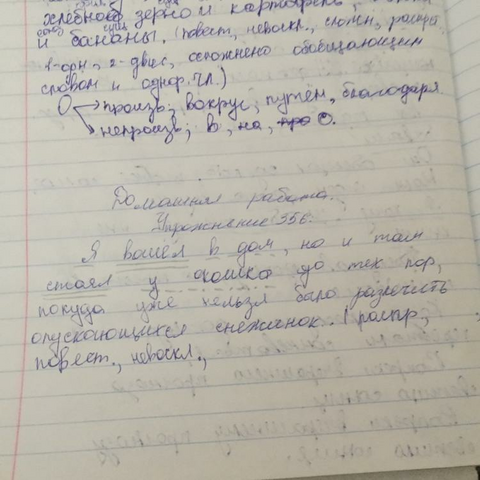 хлебное зерно и картофель,
и бананы. (повест., невоскл., сложн., распр.
1-одн., 2-двус., осложнено обобщающим
словом и однор. чл.)
О → произв; вокруг, путём, благодаря
непроизв; в, на, про О.
Домашняя работа.
Упражнение 356.
Я вошёл в дом, но и там
стоял у окошка до тех пор,
покуда уже нельзя было различить
опускающихся снежинок. (распр,
повест., невоскл.,